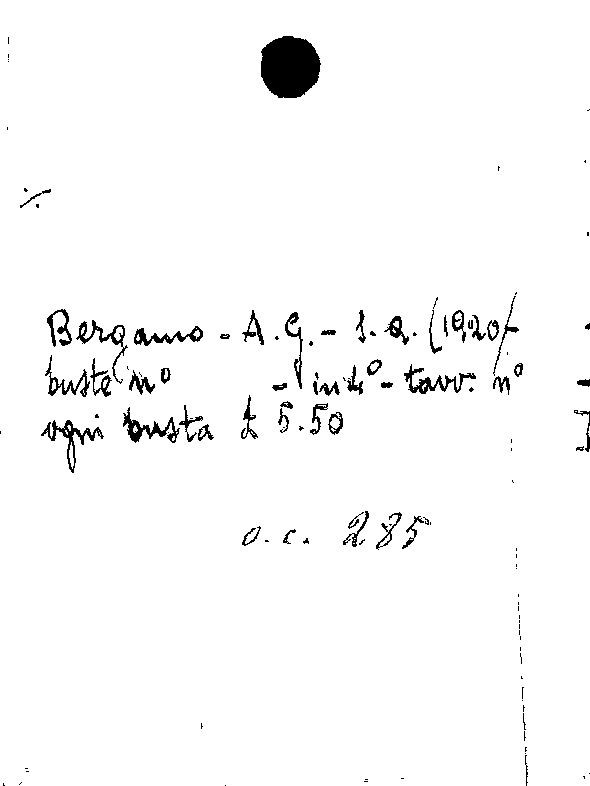 ./.
Bergamo - A.G. - s.a. (1920) -
buste nº - in 4º - tavv. nº
ogni busta £ 5.50
o.c. 285